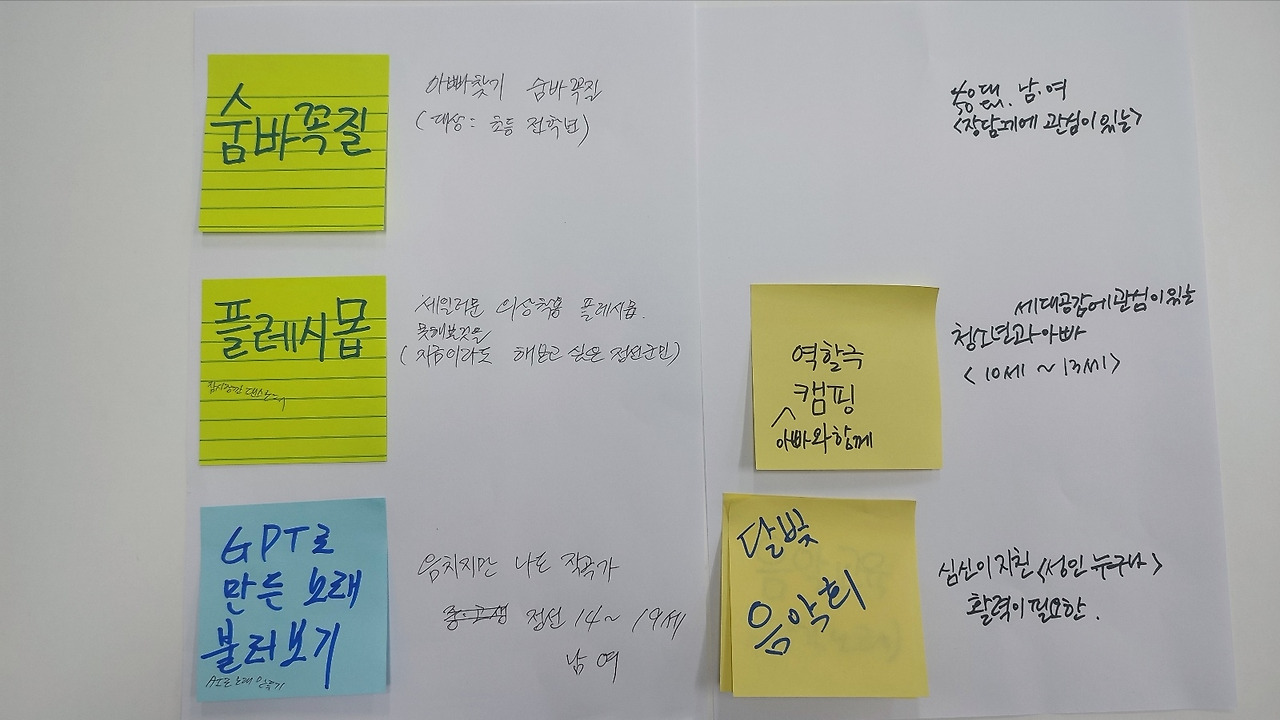 숨바꼭질
아빠찾기 숨바꼭질
(대상: 초등 전학년)
플레시몹
세일러문 의상착용 플레시몹.
못해본것을
(지금이라도 해보고 싶은 정선군민)
GPT로
만든 노래
불러보기
AI로 노래 만들기
음치지만 나도 작곡가
중·고생 정선 14~19세
남 여
남.여
<장담께에 관심이 있는>
역할극
캠핑
아빠와함께
세대공감에 관심이 있는
청소년과 아빠
<10세~13세>
달빛
음악회
심신이 지친 <성인 누구나>
활력이 필요한.